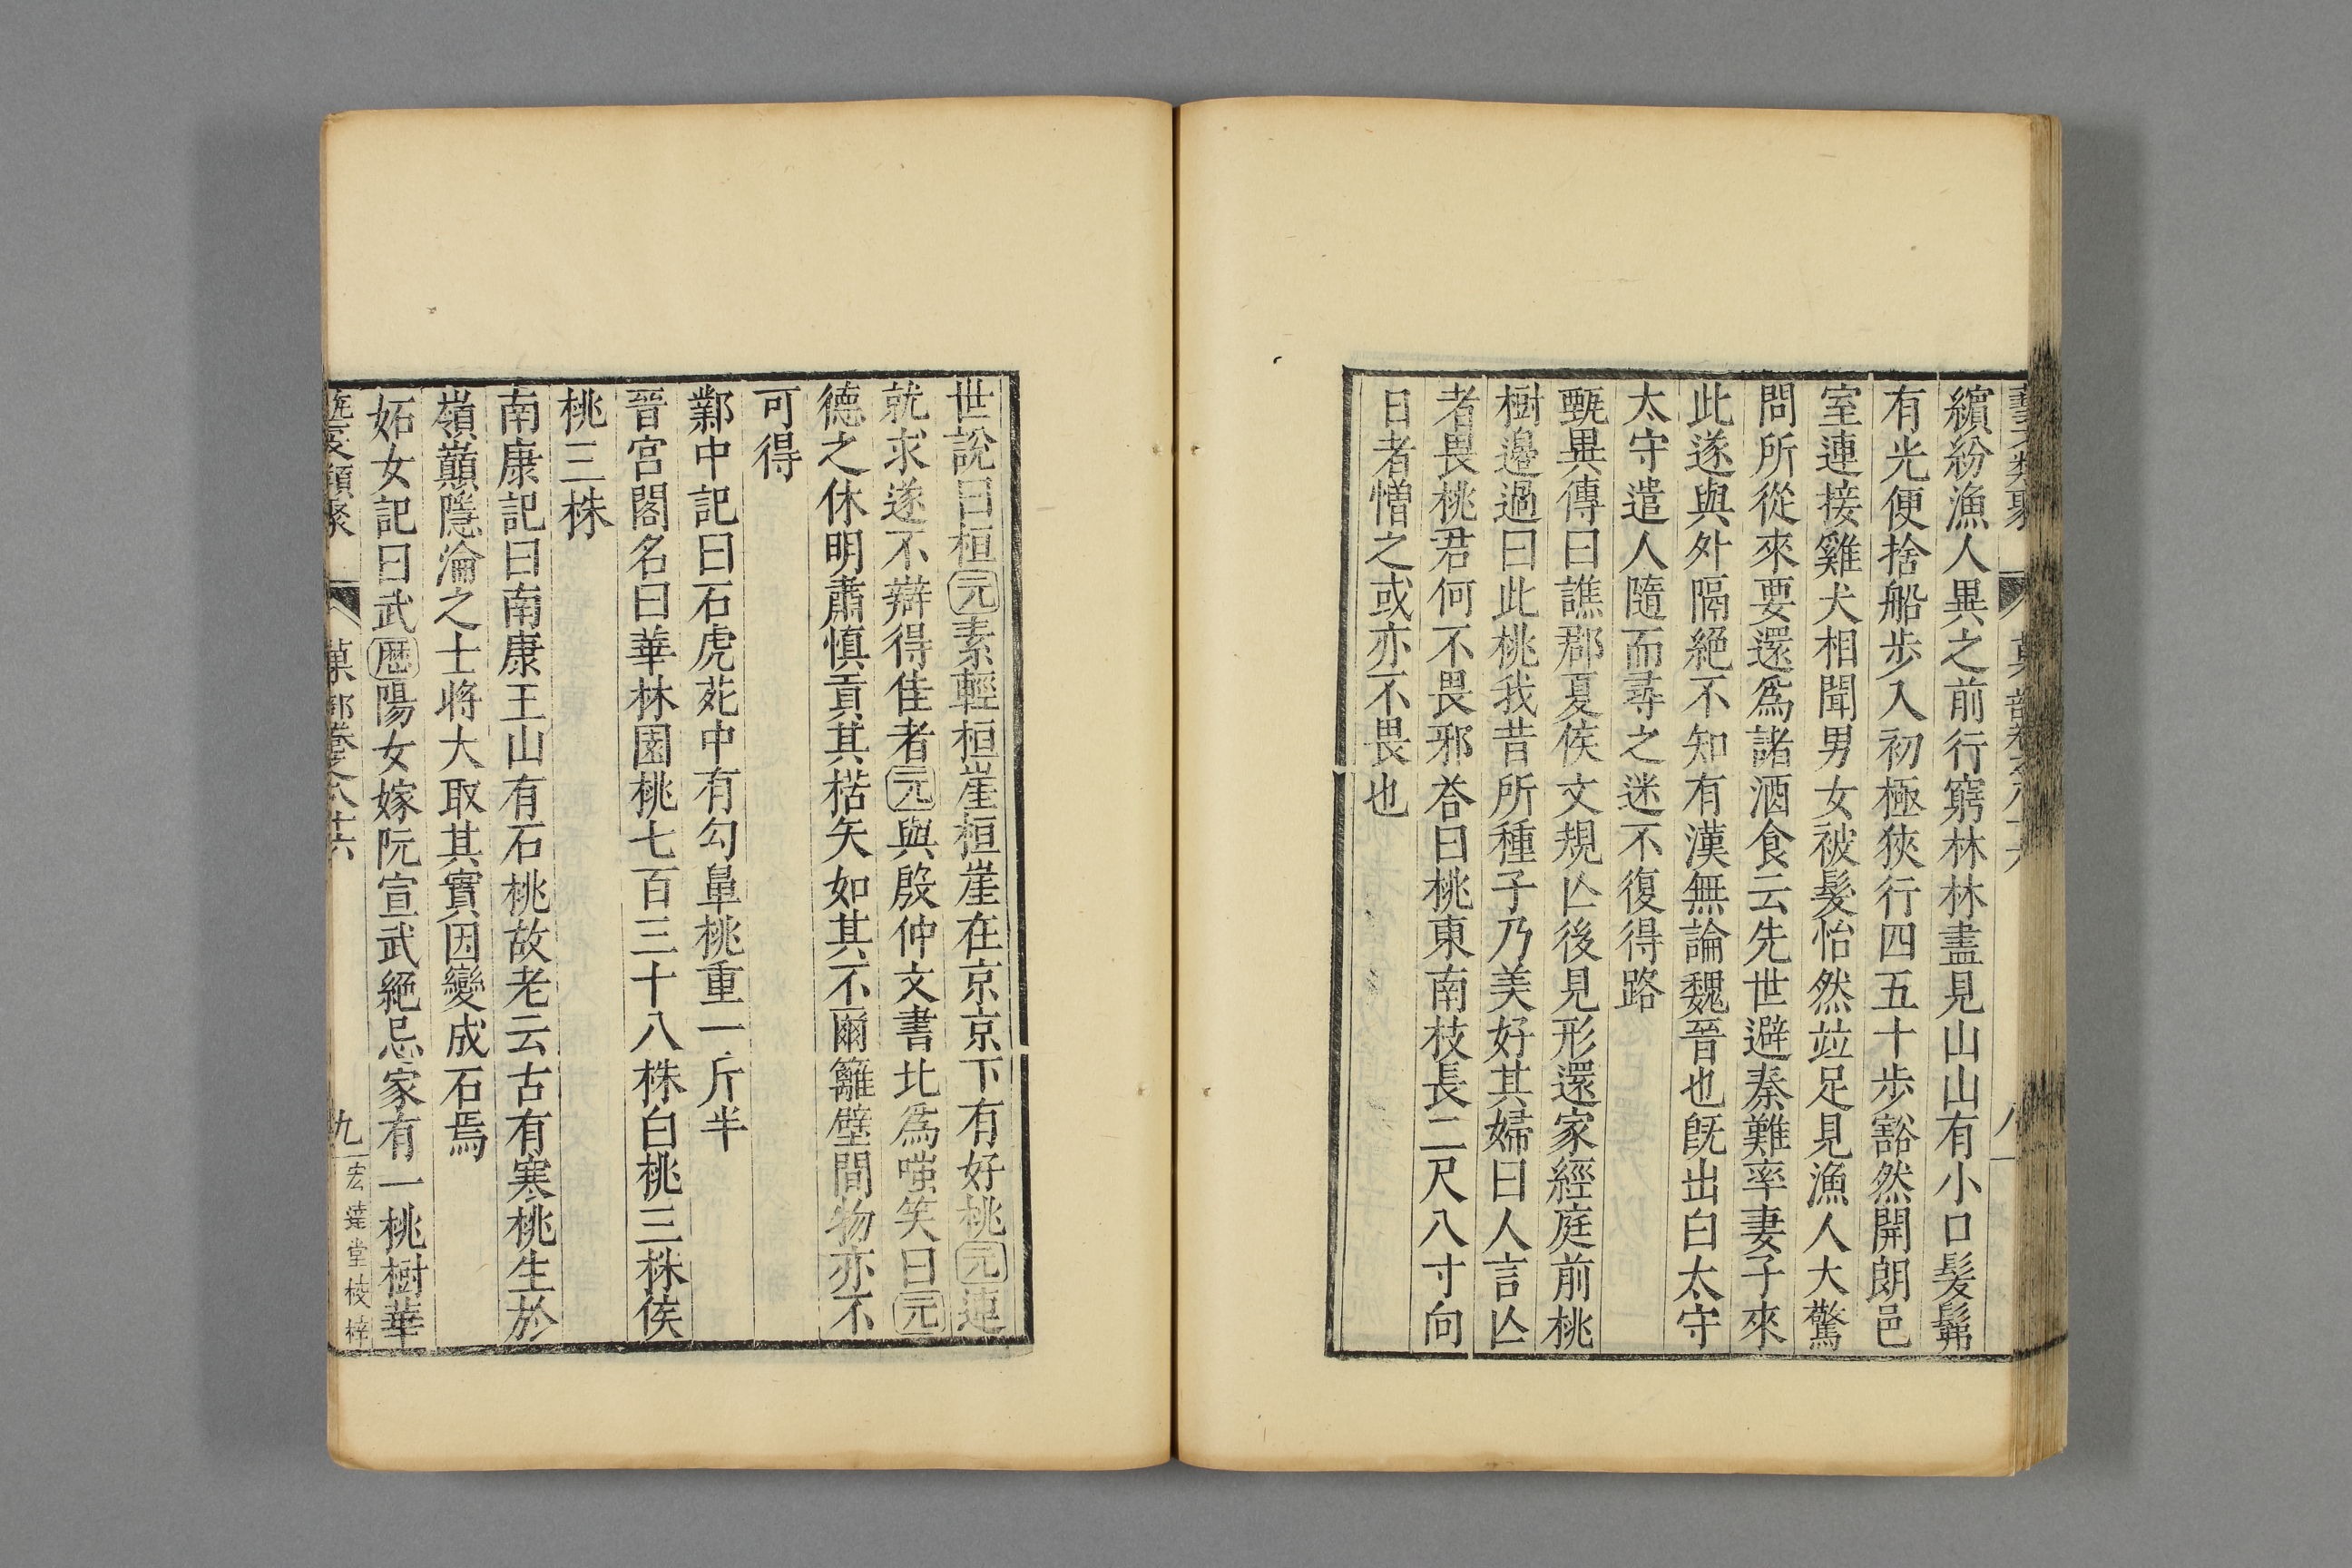 繽紛漁人異之前行窮林林盡見山山有小口髣髴
有光便捨船步入初極狹行四五十步豁然開朗邑
室連接雞犬相聞男女被髮怡然竝足見漁人大驚
問所從來要還爲諸酒食云先世避秦難率妻子來
此遂與外隔絕不知有漢無論魏晉也旣出白太守
太守遣人隨而尋之迷不復得路
甄異傳曰譙郡夏侯文規亾後見形還家經庭前桃
樹邊過曰此桃我昔所種子乃美好其婦曰人言亾
者畏桃君何不畏邪荅曰桃東南枝長二尺八寸向
日者憎之或亦不畏也
世說曰桓元素輕桓崖桓崖在京京下有好桃元連
就求遂不辯得佳者元與殷仲文書北爲嗤笑曰元
德之休明肅愼貢其楛矢如其不爾籬壁間物亦不
可得
鄴中記曰石虎苑中有勾鼻桃重一斤半
晉宮閣名曰華林園桃七百三十八株白桃三株侯
桃三株
南康記曰南康王山有石桃故老云古有寒桃生於
嶺巔隱淪之士將大取其實因變成石焉
妬女記曰武歷陽女嫁阮宣武絕忌家有一桃樹華
菓部卷八十六
九
宏達堂校梓